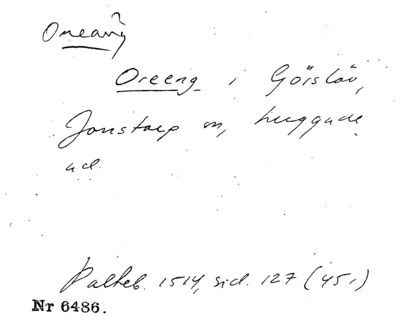 Oreäng
Oreeng i Görslöv,
Jonstorp sn, Luggude
hd.
Palteb. 1514, sid. 127 (45,)
Nr 6486.